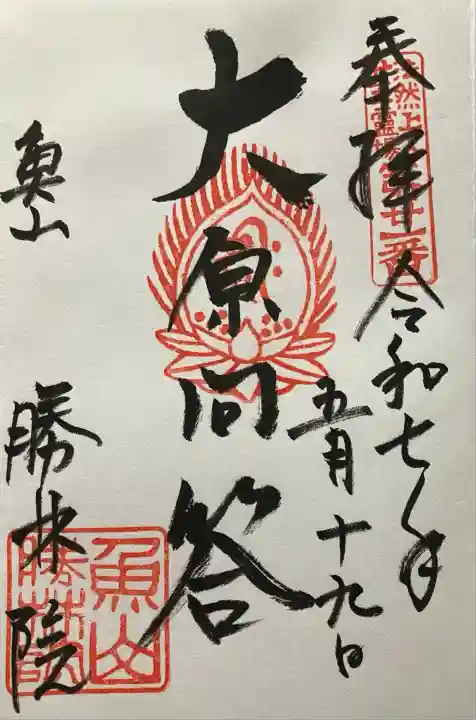 奉拝
令和七年
五月十九日
法然上人
霊場第廿一番
大原問答
魚山
勝林院
魚山
勝林院